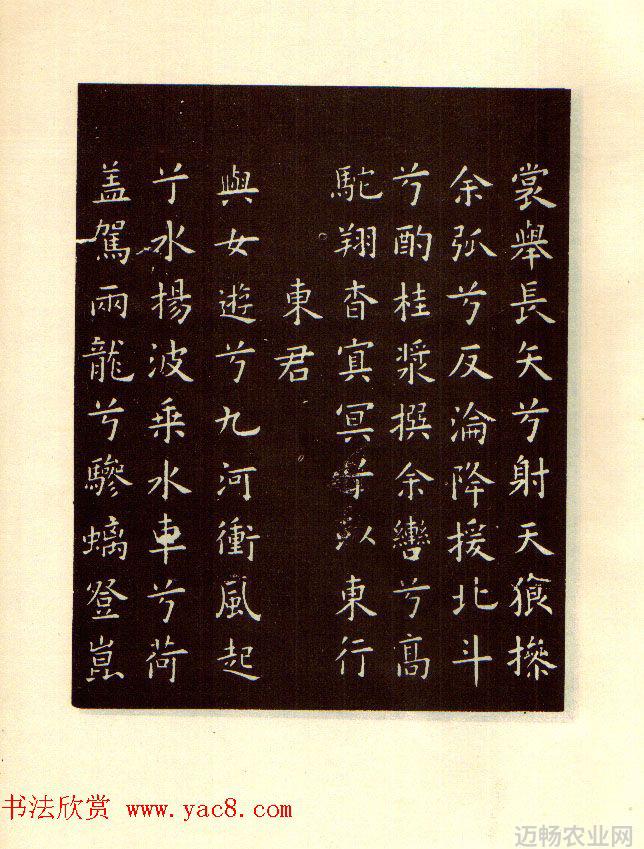 裳舉長矢兮射天狼操
余弧兮反淪降援北斗
兮酌桂漿撰余轡兮高
駝翔杳冥冥兮以東行
東君
與女遊兮九河衝風起
兮水揚波乗水車兮荷
盖駕兩龍兮驂螭登崑
书法欣赏 www.yac8.com
迈畅农业网